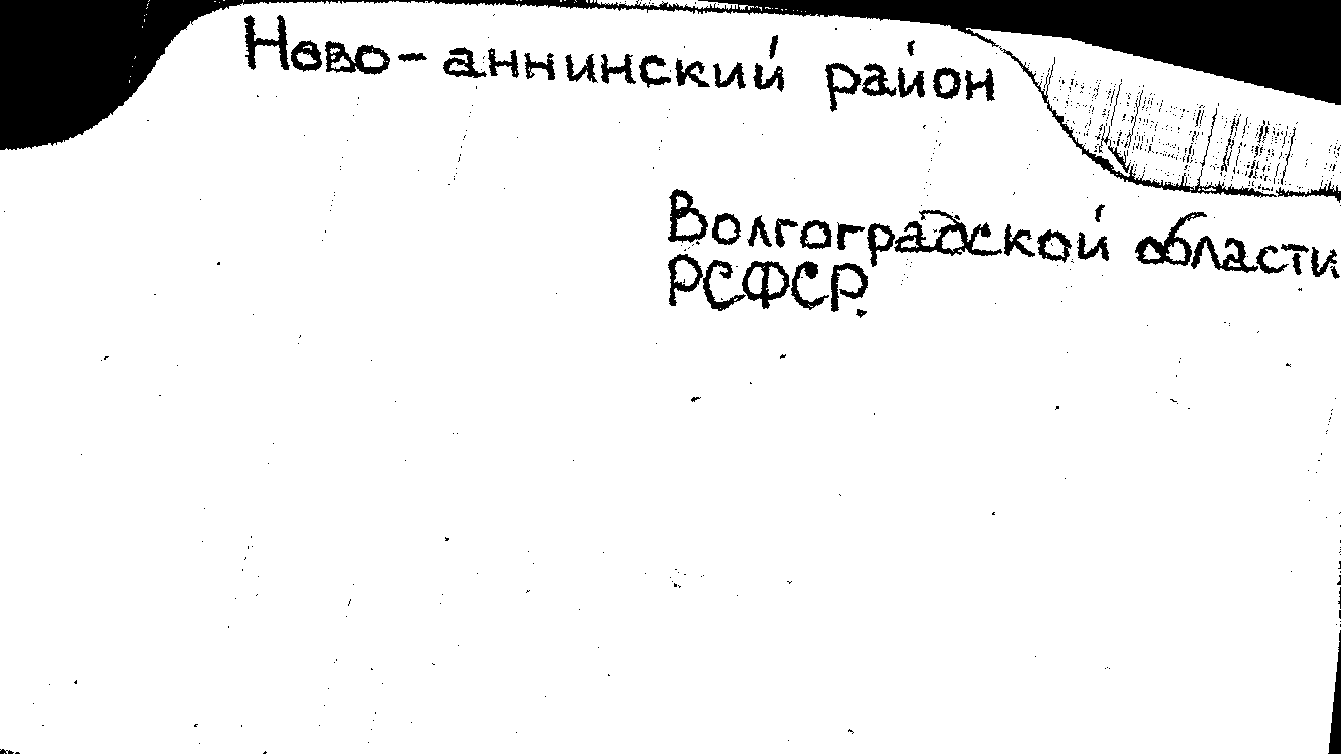 Ново-аннинский район
Волгоградской области
РСФСР.